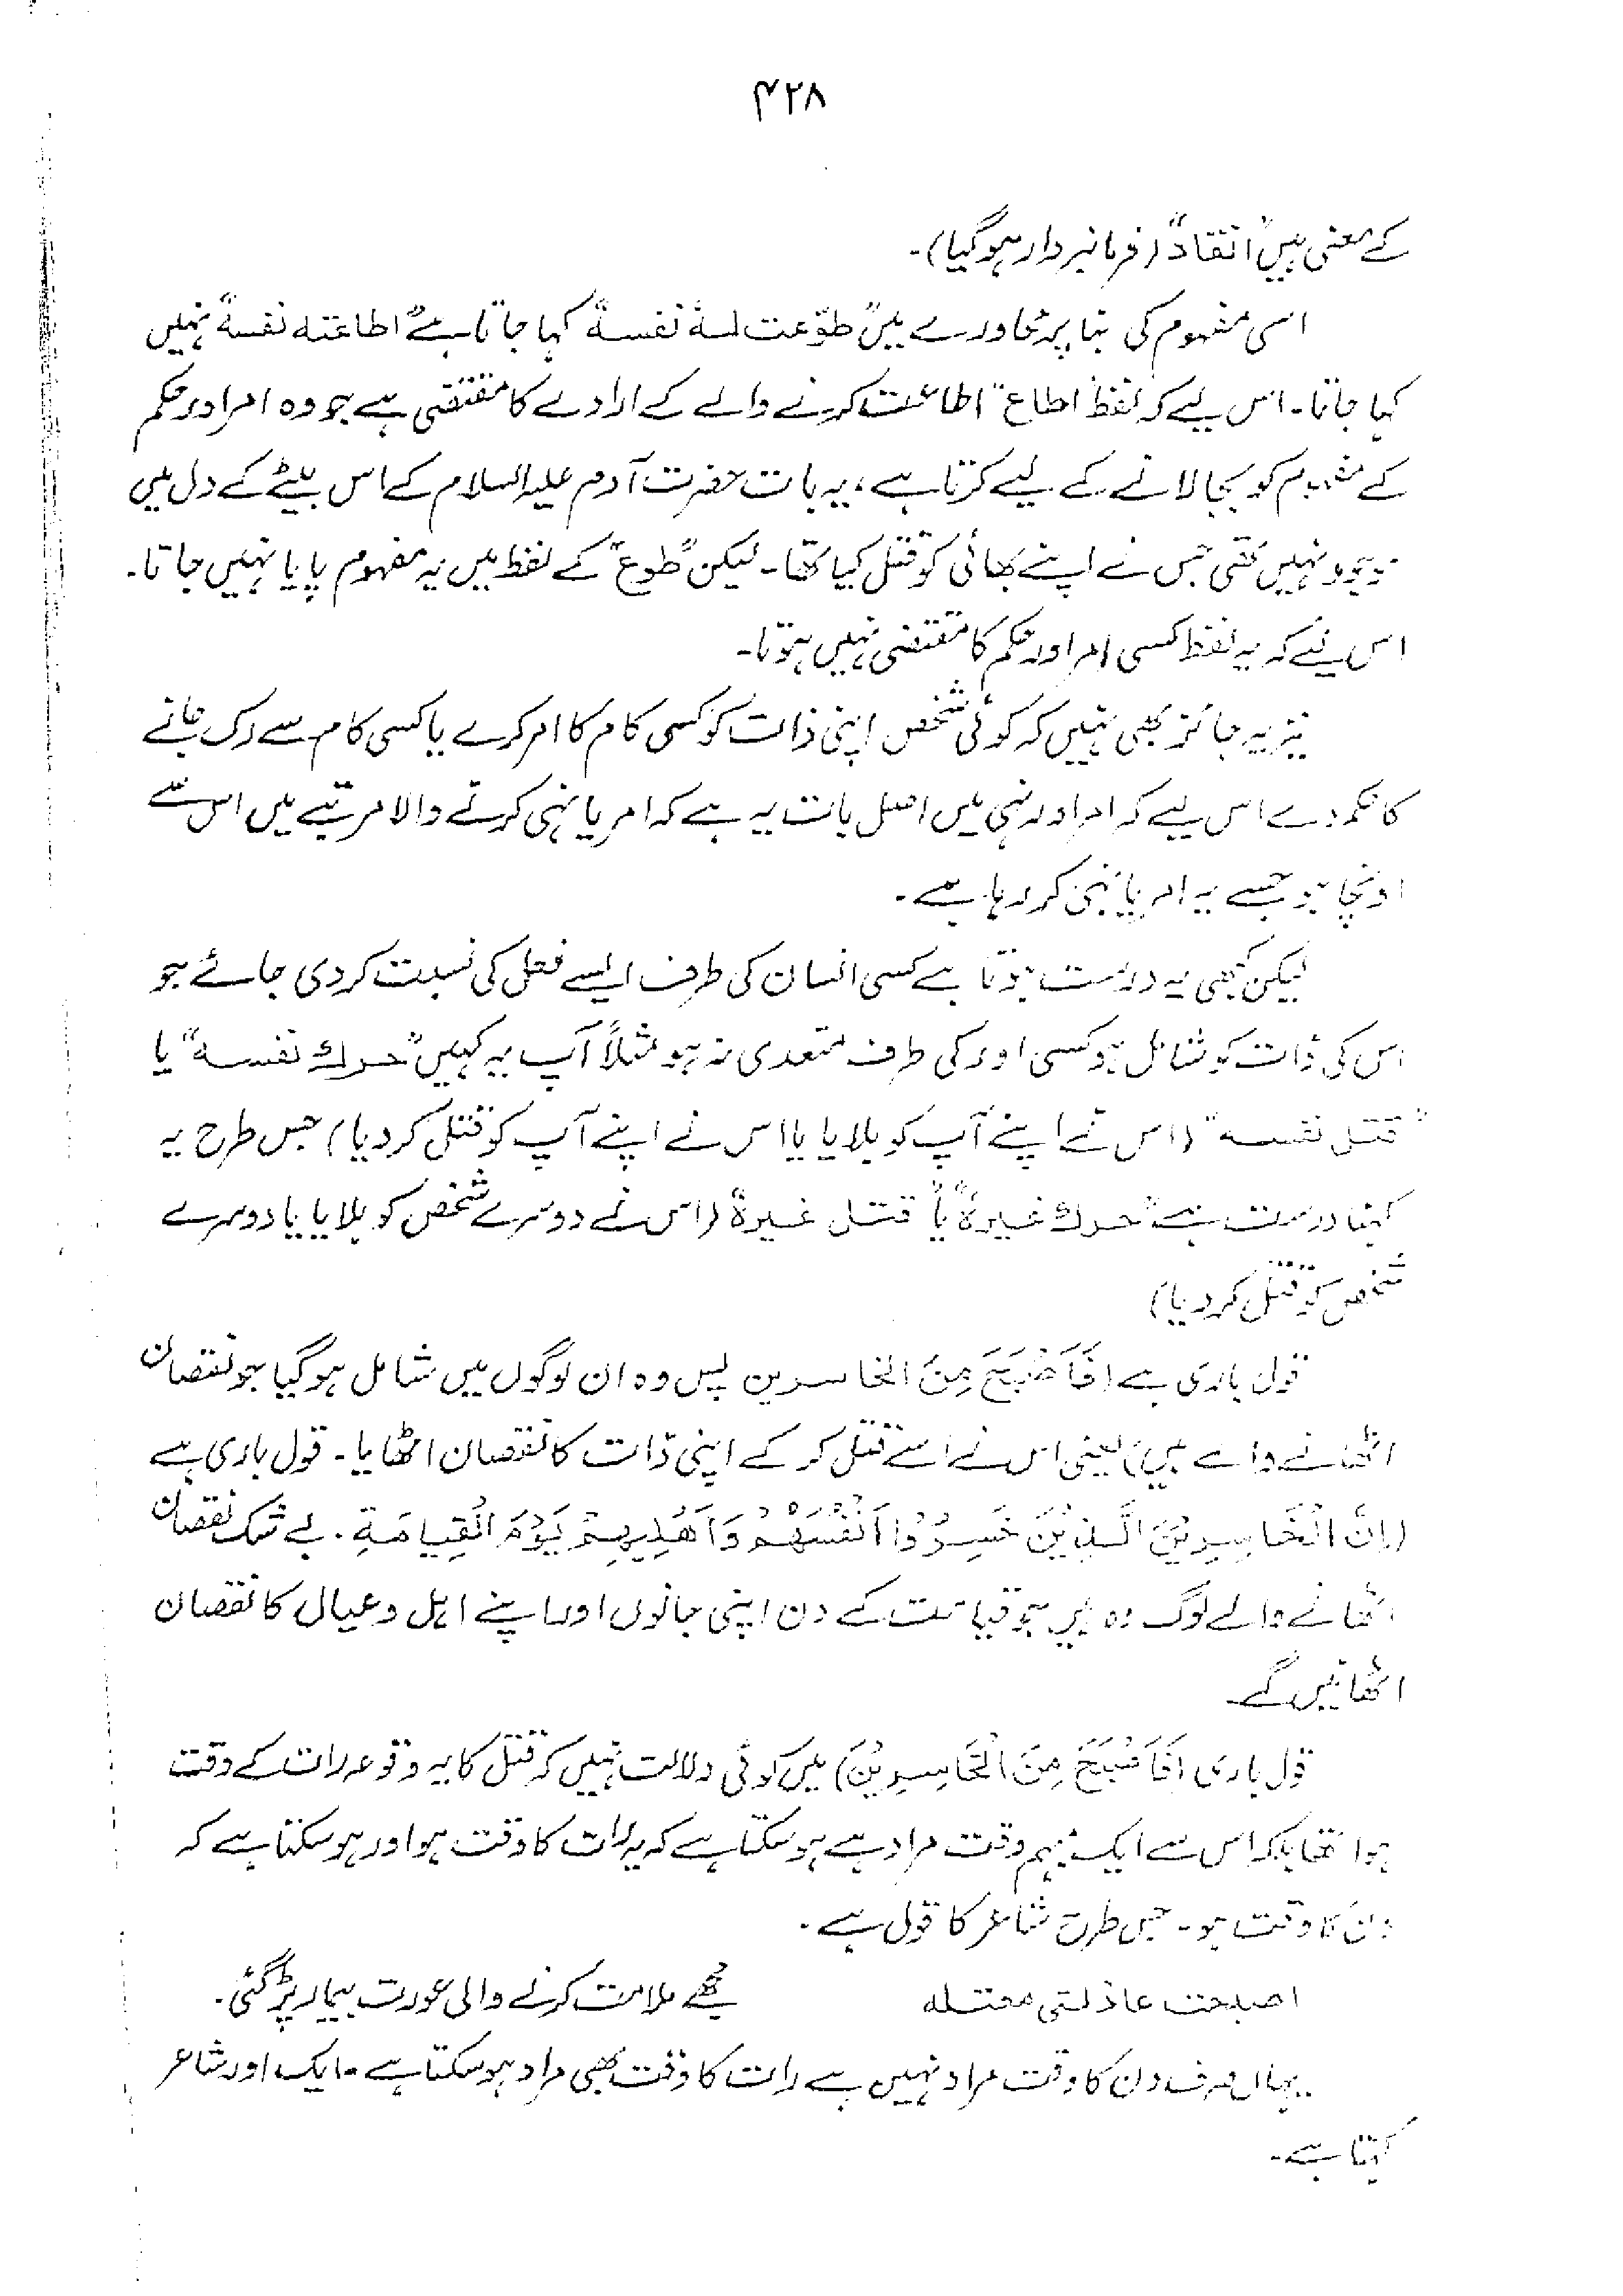 ۴۲۸
کے معنی ہیں "انقاد" (فرمانبردار ہوگیا)۔
اسی مفہوم کی بنا پر محاورے میں "طوّعت لہ نفسہ" کہا جاتا ہے "اطاعتہ نفسہ" نہیں
کہا جاتا۔ اس لیے کہ لفظ "اطاع" اطاعت کرنے والے کے ارادے کا مقتضی ہے جو وہ امر اور حکم
کے مفہوم کو بجا لانے کے لیے کرتا ہے، یہ بات حضرت آدم علیہ السلام کے اس بیٹے کے دل میں
موجود نہیں تھی جس نے اپنے بھائی کو قتل کیا تھا۔ لیکن "طوع" کے لفظ میں یہ مفہوم پایا نہیں جاتا۔
اس لئے کہ یہ لفظ کسی امر اور حکم کا مقتضی نہیں ہوتا۔
نیز یہ جائز بھی نہیں کہ کوئی شخص اپنی ذات کو کسی کام کا امر کرے یا کسی کام سے رک جانے
کا حکم دے اس لیے کہ امر اور نہی میں اصل بات یہ ہے کہ امر یا نہی کرنے والا مرتبے میں اس سے
اونچا ہو جسے یہ امر یا نہی کر رہا ہے۔
لیکن کبھی یہ درست ہوتا ہے کسی انسان کی طرف ایسے فعل کی نسبت کر دی جائے جو
اس کی ذات کو شامل ہو کسی اور کی طرف متعدی نہ ہو مثلاً آپ یہ کہیں "حرك نفسه" یا
"قتل نفسه" (اس نے اپنے آپ کو ہلایا یا اس نے اپنے آپ کو قتل کر دیا) جس طرح یہ
کہنا درست ہے "حرك غیرہ" یا "قتل غیرہ" (اس نے دوسرے شخص کو ہلایا یا دوسرے
شخص کو قتل کر دیا)
قول باری ہے (فَاَصْبَحَ مِنَ الخاسرین پس وہ ان لوگوں میں شامل ہوگیا جو نقصان
اٹھانے والے ہیں) یعنی اس نے اسے قتل کر کے اپنی ذات کا نقصان اٹھایا۔ قول باری ہے
(اِنَّ الْخَاسِرِیْنَ الَّذِیْنَ خَسِرُوْا اَنْفُسَهُمْ وَاَهْلِیْهِمْ یَوْمَ الْقِیَامَةِ۔ بے شک نقصان
اٹھانے والے لوگ وہ ہیں جو قیامت کے دن اپنی جانوں اور اپنے اہل و عیال کا نقصان
اٹھائیں گے
قول باری (فَاَصْبَحَ مِنَ الْخَاسِرِیْنَ) میں کوئی دلالت نہیں کہ قتل کا یہ وقوعہ رات کے وقت
ہوا تھا بلکہ اس سے ایک مبہم وقت مراد ہے ہو سکتا ہے کہ یہ رات کا وقت ہو اور ہو سکتا ہے کہ
دن کا وقت ہو۔ جس طرح شاعر کا قول ہے۔
اصبحت عاذلتی معتلہ مجھے ملامت کرنے والی عورت بیمار پڑ گئی۔
یہاں صرف دن کا وقت مراد نہیں ہے رات کا وقت بھی مراد ہو سکتا ہے۔ ایک اور شاعر
کہتا ہے۔